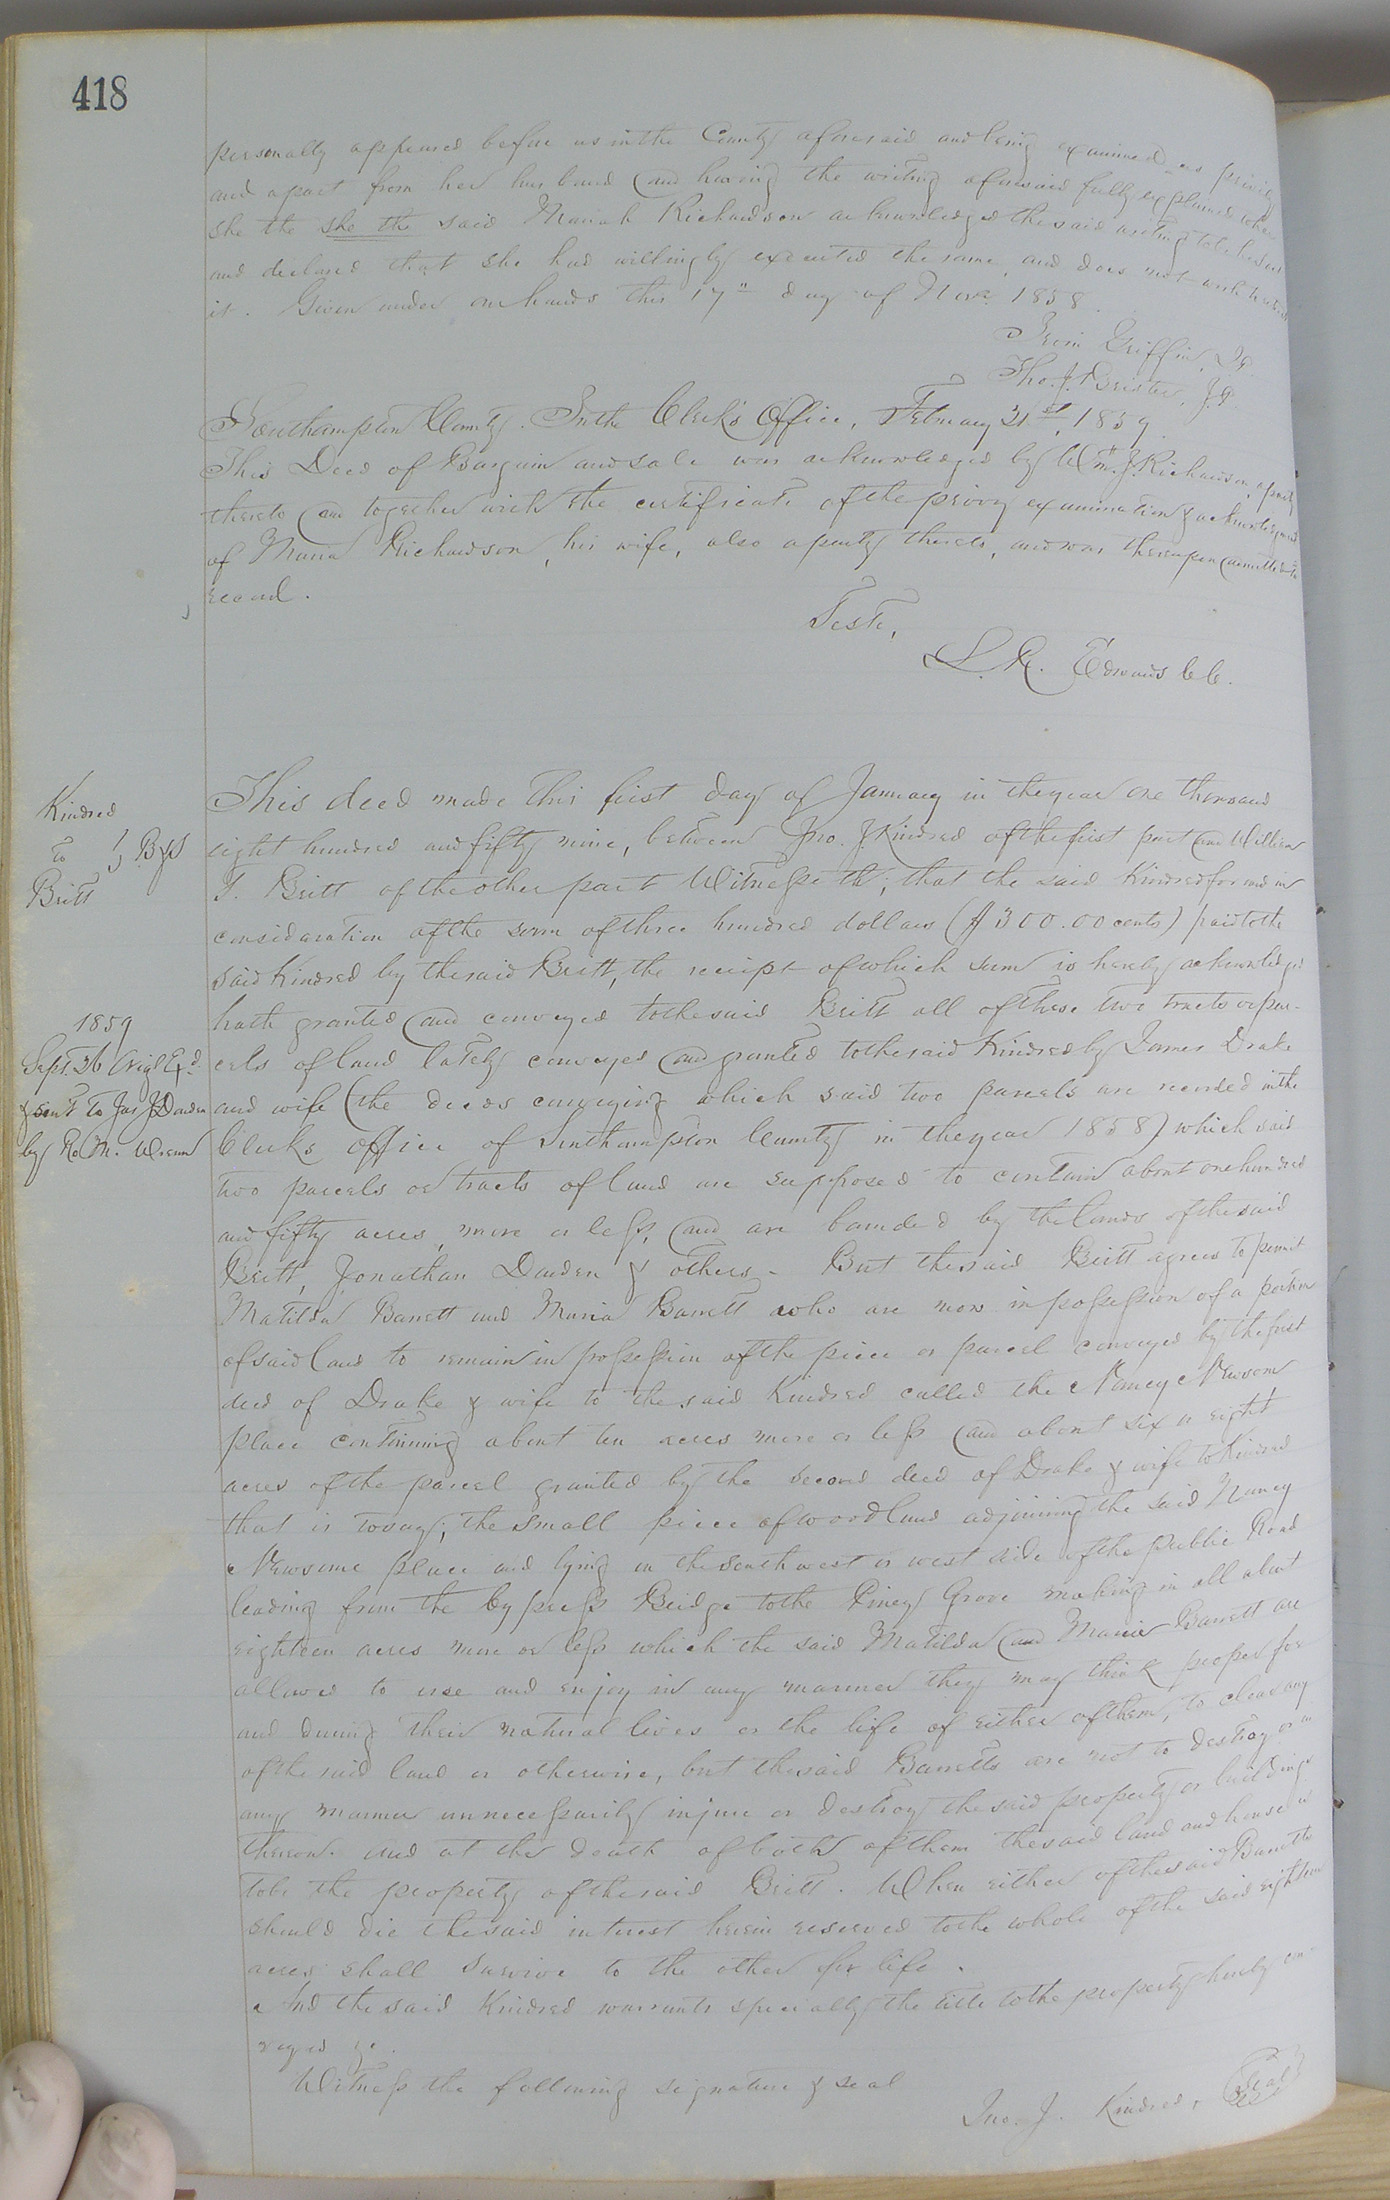 418
personally appeared before us in the County aforesaid and being examined by us privily
and apart from her husband and having the writing aforesaid fully explained
she the she the said Mariah Richardson acknowledged the said writing to be her
and declared that she had willingly executed the same, and does not wish to
it. Given under our hands this 17th day of Nov. 1858.
Griffin, J.P.
Tho. J. J.P.
Southampton County. In the Clerk's Office, February 21st, 1859.
This Deed of Bargain and sale was acknowledged by Wm. J. Richardson, a party
thereto and together with the certificate of the privy examination & acknowledgment
of Maria Richardson, his wife, also a party thereto, and was thereupon admitted to
record.
Teste,
L. R. Edwards C.C.
Kindred
to } B & S
Britt
1859
Sept. 26 Origl Exd.
& sent to Jas J Darden
by R. M. Wrenn
This deed made this first day of January in the year one thousand
eight hundred and fifty nine, between Jno. J Kindred of the first part and William
T. Britt of the other part Witnesseth; that the said Kindred for and in
consideration of the sum of three hundred dollars ($300.00 cents) paid to the
said Kindred by the said Britt, the receipt of which sum is hereby acknowledged
hath granted and conveyed to the said Britt all of those two tracts or par-
cels of land lately conveyed and granted to the said Kindred by James Drake
and wife (the deeds conveying which said two parcels are recorded in the
Clerks office of Southampton County in the year 1858) which said
two parcels or tracts of land are supposed to contain about one hundred
and fifty acres, more or less, and are bounded by the lands of the said
Britt, Jonathan Darden & others - But the said Britt agrees to permit
Matilda Barrett and Maria Barrett who are now in possession of a portion
of said land to remain in possession of the piece or parcel conveyed by the first
deed of Drake & wife to the said Kindred called the Nancy Newsom
place containing about ten acres more or less and about six or eight
acres of the parcel granted by the second deed of Drake & wife to Kindred
that is to say; the small piece of woodland adjoining the said Nancy
Newsome place and lying on the South west or west side of the public Road
leading from the Cypress Bridge to the Piney Grove making in all about
eighteen acres more or less which the said Matilda and Maria Barrett are
allowed to use and enjoy in any manner they may think proper for
and during their natural lives or the life of either of them, to clear any
of the said land or otherwise, but the said Barretts are not to destroy or in
any manner unnecessarily injure or destroy the said property or buildings
thereon. And at the death of both of them the said land and house is
to be the property of the said Britt. When either of the said Barretts
should die the said interest herein reserved to the whole of the said eighteen
acres shall survive to the other for life.
And the said Kindred warrants specially the title to the property hereby con-
veyed &c.
Witness the following signature & seal
Jno. J. Kindred, Seal